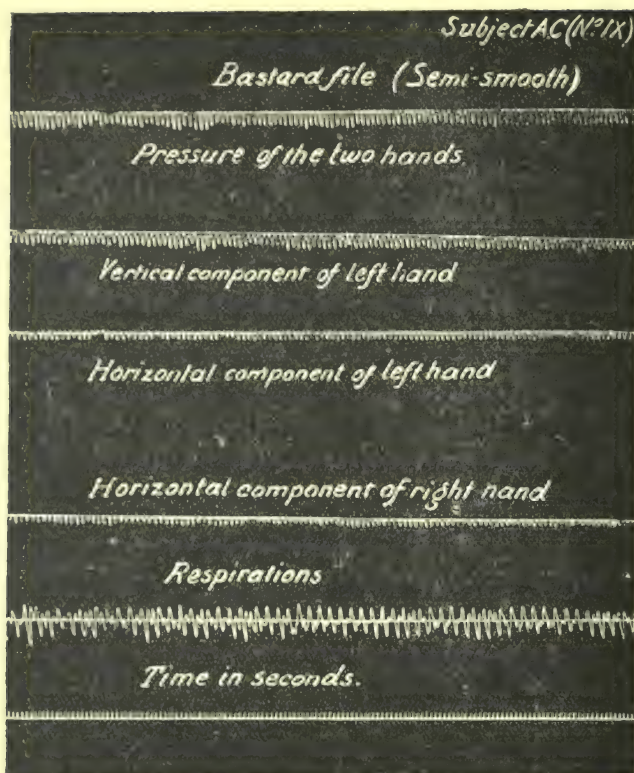 Subject AC (Nº IX)
Bastard file (Semi-smooth)
Pressure of the two hands.
Vertical component of left hand
Horizontal component of left hand
Horizontal component of right hand
Respirations
Time in seconds.